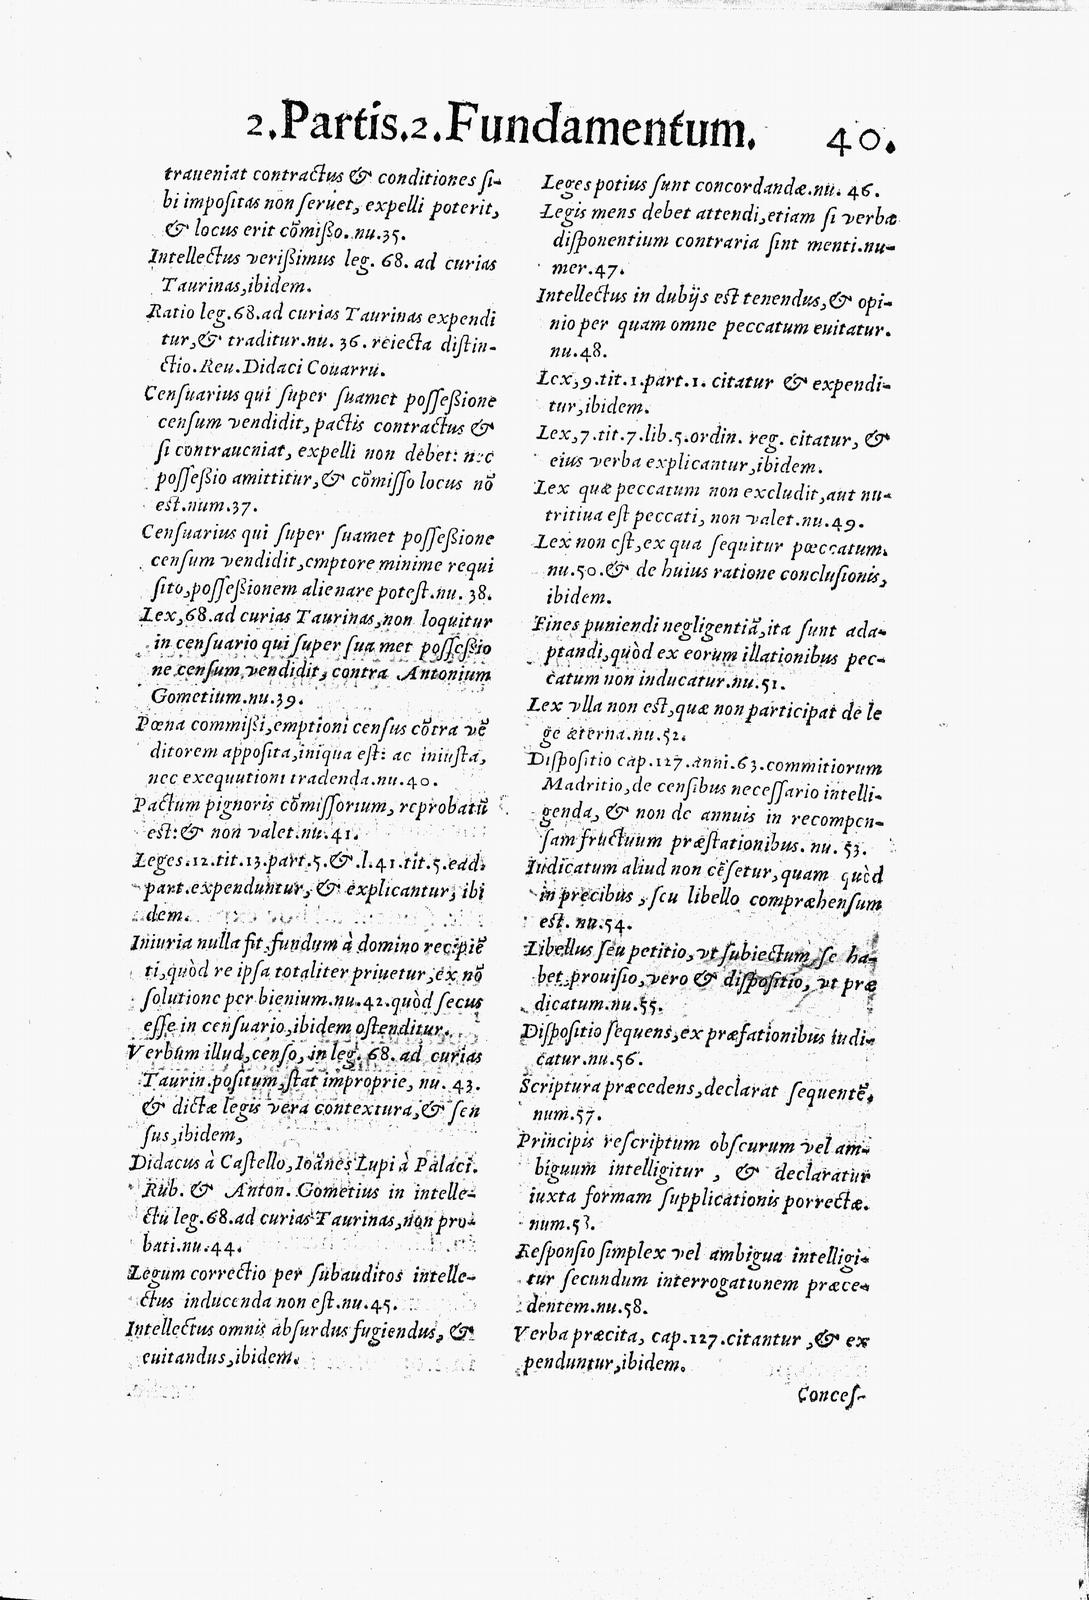 2.Partis.2.Fundamentum. 40.
traueniat contractus & conditiones si-
bi impositas non seruet, expelli poterit,
& locus erit cõmisso.nu.35.
Intellectus verissimus leg. 68. ad curias
Taurinas,ibidem.
Ratio leg.68.ad curias Taurinas expendi
tur,& traditur.nu. 36. reiecta distin-
ctio.Reu.Didaci Couarru.
Censuarius qui super suamet possessione
censum vendidit, pactis contractus &
si contraueniat, expelli non debet: nec
possessio amittitur,& cõmisso locus nõ
est.num.37.
Censuarius qui super suamet possessione
censum vendidit,emptore minime requi
sito,possessionem alienare potest.nu. 38.
Lex,68.ad curias Taurinas,non loquitur
in censuario qui super sua met possessio
ne censum vendidit, contra Antonium
Gometium.nu.39.
Pœna commissi,emptioni census cõtra vẽ
ditorem apposita,iniqua est: ac iniusta,
nec exequutioni tradenda.nu.40.
Pactum pignoris cõmissorium, reprobatũ
est:& non valet.nu.41.
Leges.12.tit.13.part.5.&.l.41.tit.5.ead.
part.expenduntur, & explicantur, ibi
dem.
Iniuria nulla fit,fundum à domino recipiẽ
ti,quòd re ipsa totaliter priuetur,ex nõ
solutione per bienium.nu.42.quòd secus
esse in censuario,ibidem ostenditur.
Verbum illud,censo, in leg. 68. ad curias
Taurin.positum,stat improprie, nu. 43.
& dictæ legis vera contextura,& sen
sus,ibidem,
Didacus à Castello,Ioãnes Lupi à Palaci.
Rub. & Anton. Gometius in intelle-
ctu leg.68.ad curias Taurinas,non pro-
bati.nu.44.
Legum correctio per subauditos intelle-
ctus inducenda non est.nu.45.
Intellectus omnis absurdus fugiendus, &
euitandus,ibidem.
Leges potius sunt concordandæ.nu. 46.
Legis mens debet attendi,etiam si verba
disponentium contraria sint menti.nu-
mer.47.
Intellectus in dubijs est tenendus,& opi-
nio per quam omne peccatum euitatur.
nu.48.
Lex,9.tit.1.part.1. citatur & expendi-
tur,ibidem.
Lex,7.tit.7.lib.5.ordin. reg. citatur, &
eius verba explicantur,ibidem.
Lex quæ peccatum non excludit,aut nu-
tritiua est peccati, non valet.nu.49.
Lex non est,ex qua sequitur pœccatum.
nu.50.& de huius ratione conclusionis,
ibidem.
Fines puniendi negligentiã,ita sunt ada-
ptandi,quòd ex eorum illationibus pec-
catum non inducatur.nu.51.
Lex vlla non est,quæ non participat de le
ge æterna.nu.52.
Dispositio cap.127.anni.63.commitiorum
Madritio,de censibus necessario intelli-
genda, & non de annuis in recompen-
sam fructuum præstationibus. nu. 53.
Iudicatum aliud non cẽsetur,quam quòd
in precibus , seu libello compræhensum
est. nu.54.
Libellus seu petitio, vt subiectum, se ha-
bet,prouisio,vero & dispositio, vt præ
dicatum.nu.55.
Dispositio sequens,ex præfationibus iudi-
catur.nu.56.
Scriptura præcedens,declarat sequentẽ,
num.57.
Principis rescriptum obscurum vel am-
biguum intelligitur , & declaratur
iuxta formam supplicationis porrectæ.
num.53.
Responsio simplex vel ambigua intelligi-
tur secundum interrogationem præce-
dentem.nu.58.
Verba præcita, cap.127.citantur ,& ex
penduntur,ibidem.
Conces-